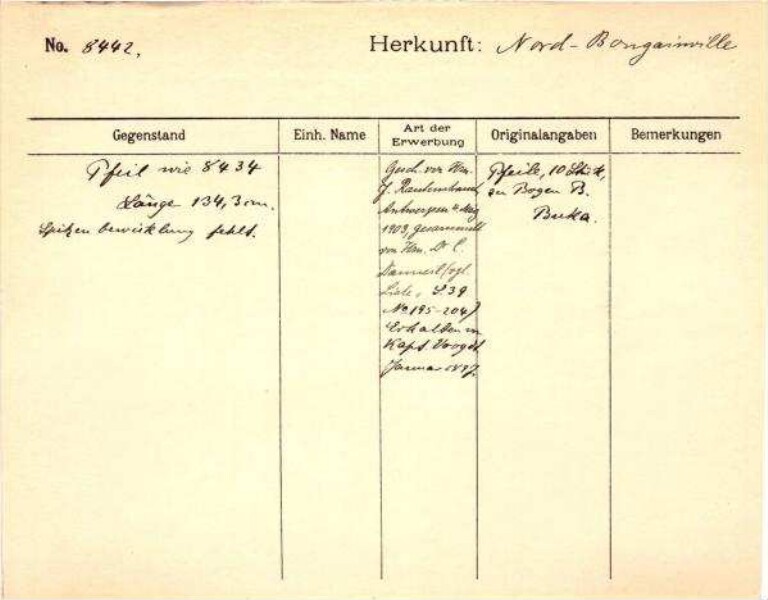 No. 8442. Herkunft: Nord-Bougainville
Gegenstand Einh. Name Art der Erwerbung Originalangaben Bemerkungen
Pfeil wie 8434
Länge 134,3 cm.
Spitzenbewicklung fehlt.
Gesch. von Hrn.
J. Rautenstrauch
Antwerpen 4. Mai
1903, gesammelt
von Hrn. Dr C.
(vgl.
Liste, S. 39
No 195-204)
Erhalten v.
Kapt. Voogdt
Januar 1897.
Pfeile, 10 Stück,
zu Bogen B.
Buka.